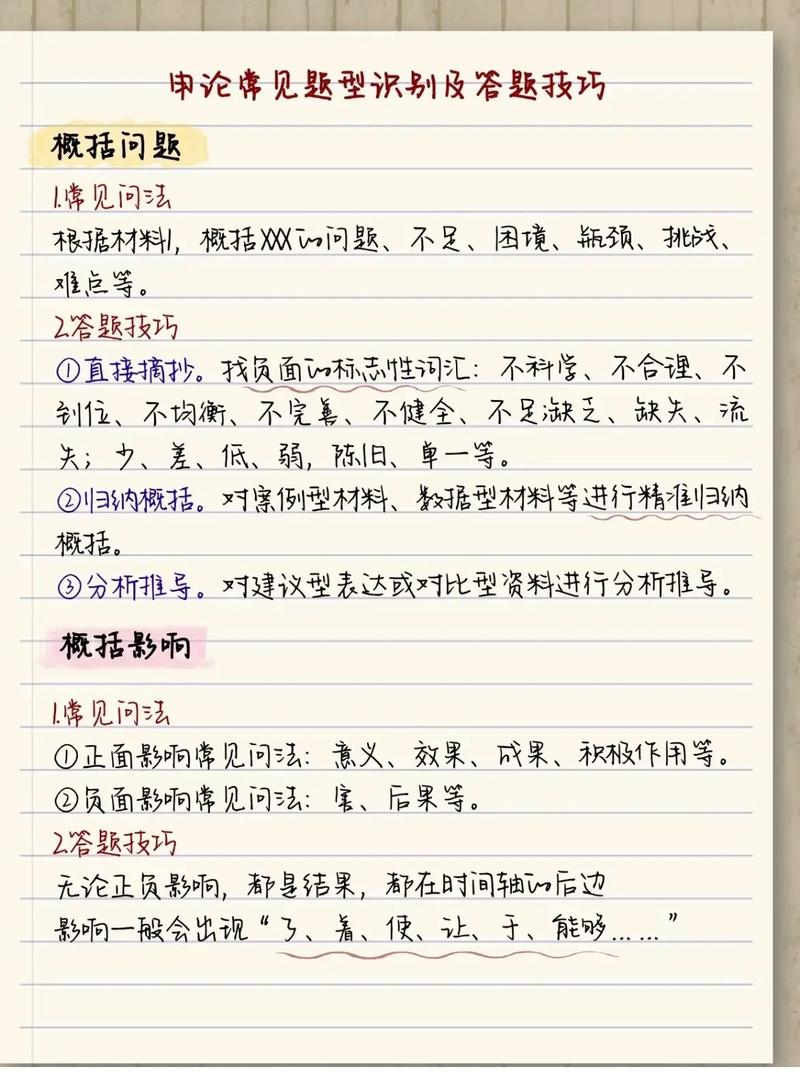 申论常见题型识别及答题技巧
概括问题
1.常见问法
根据材料1，概括XXX的问题、不足、困境、瓶颈、挑战、
难点等。
2.答题技巧
①直接摘抄。找负面的标志性词汇：不科学、不合理、不
到位、不均衡、不完善、不健全、不足缺乏、缺失、流
失；少、差、低、弱，陈旧、单一等。
②归纳概括。对案例型材料、数据型材料等进行精准归纳
概括。
③分析推导。对建议型表达或对比型资料进行分析推导。
概括影响
1.常见问法
①正面影响常见问法：意义、效果、成果、积极作用等。
②负面影响常见问法：害、后果等。
2.答题技巧
无论正负影响，都是结果，都在时间轴的后边
影响一般会出现“了、着、使、让、于、能够……”